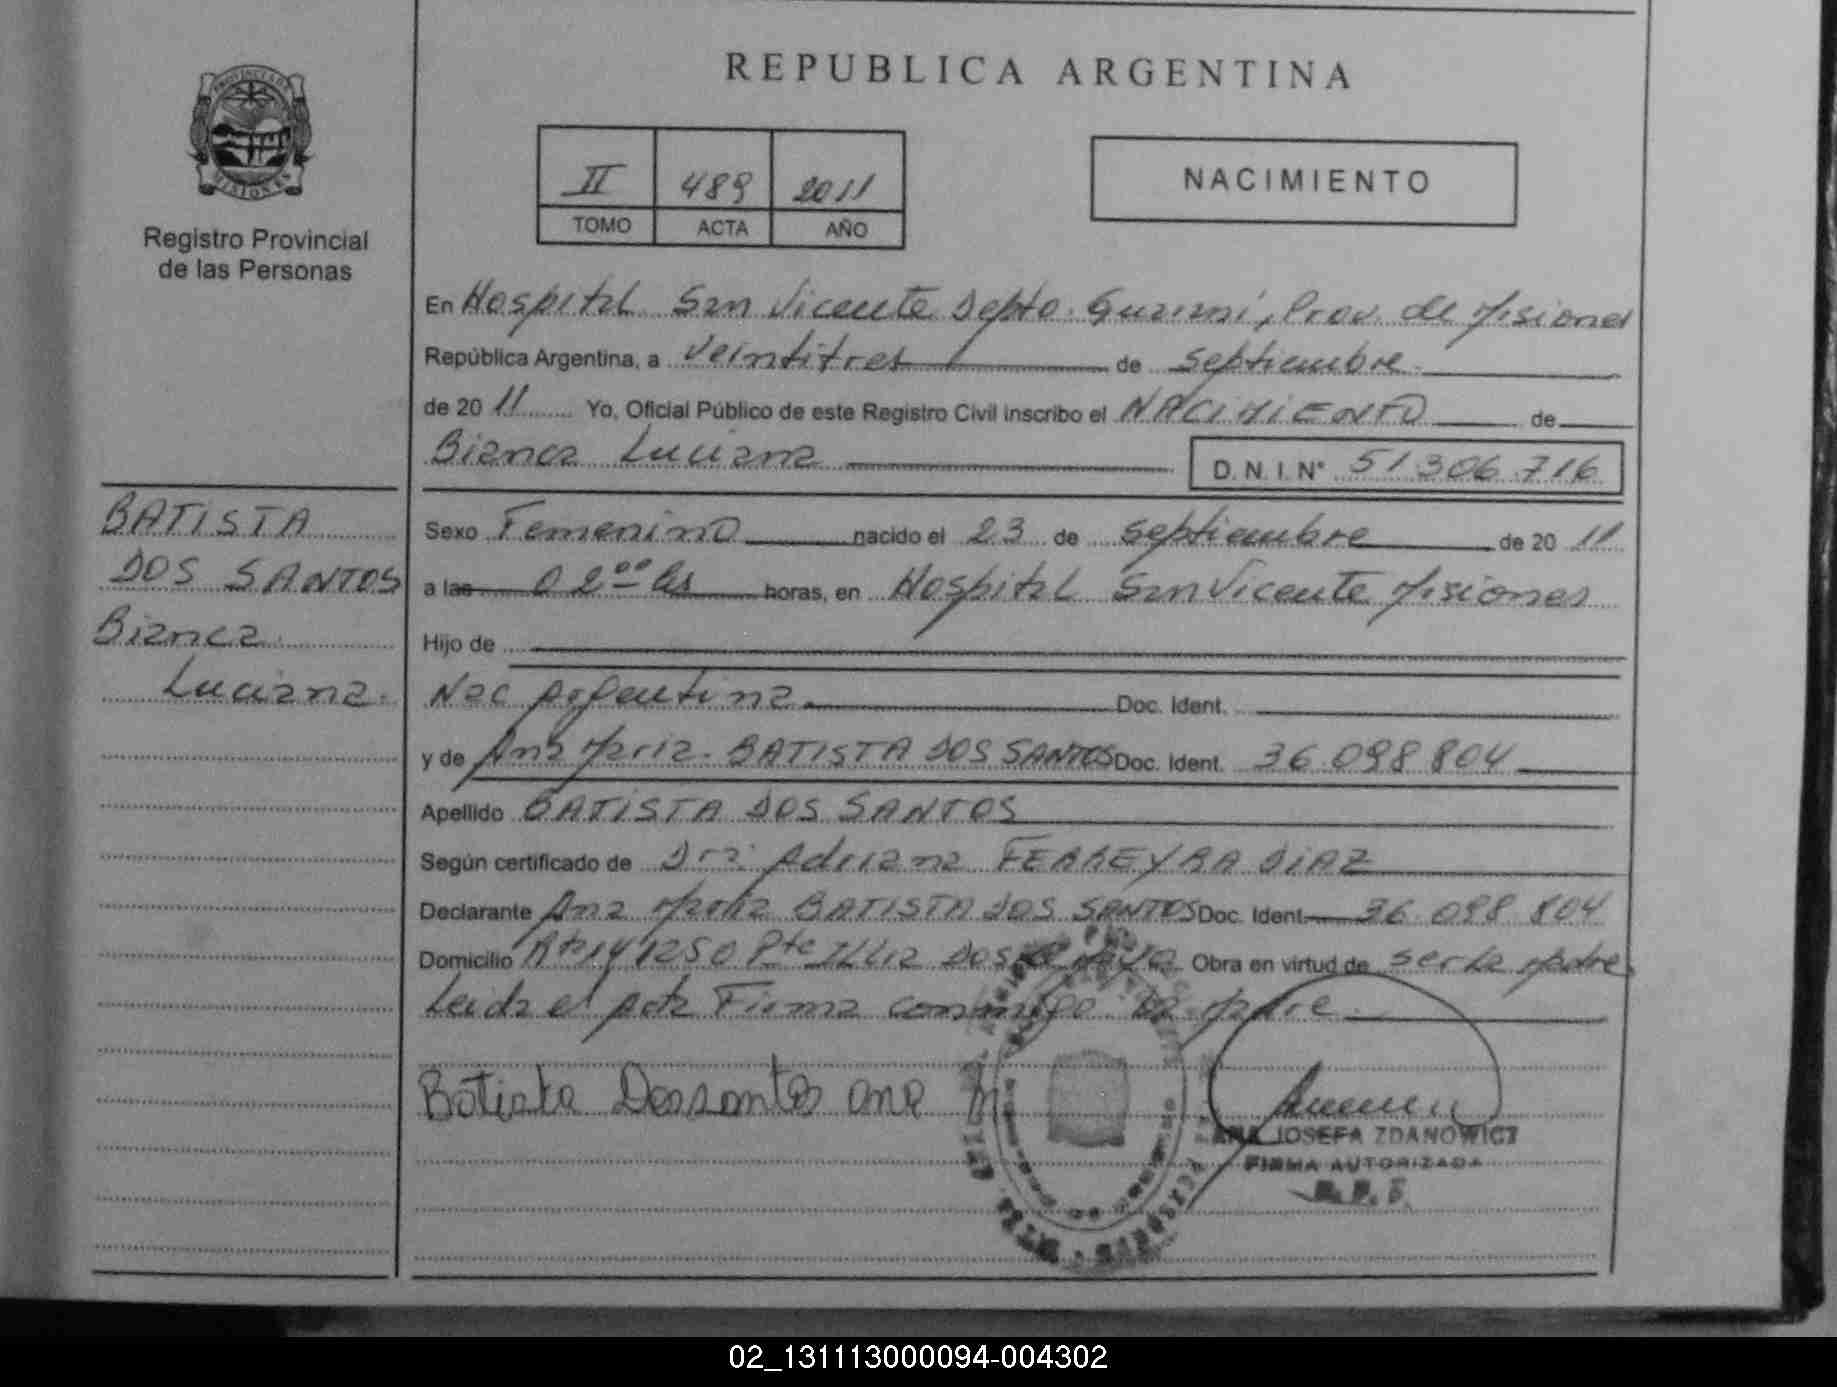 REPUBLICA ARGENTINA
PROVINCIA DE
MISIONES
Registro Provincial
de las Personas
II 489 2011
TOMO ACTA AÑO
NACIMIENTO
En Hospital San Vicente Depto. Guaraní, Prov. de Misiones
República Argentina, a veintitres de septiembre
de 20 11 Yo, Oficial Público de este Registro Civil inscribo el NACIMIENTO de
Bianca Luciana D. N. I. N° 51.306.716
BATISTA
DOS SANTOS
Bianca
Luciana.
Sexo Femenino nacido el 23 de septiembre de 20 11
a las 02ºº hs horas, en Hospital San Vicente Misiones
Hijo de
Nac Argentina Doc. Ident.
y de Ana Maria BATISTA DOS SANTOS Doc. Ident. 36.098.804
Apellido BATISTA DOS SANTOS
Según certificado de Dra: Adriana FERREYRA DIAZ
Declarante Ana Maria BATISTA DOS SANTOS Doc. Ident. 36.098.804
Domicilio 1250 Pte Illia Dos Obra en virtud de ser la Madre
Leida el Acta Firma conmigo la Madre
Batista Dossantos ana M
ANA JOSEFA ZDANOWICZ
FIRMA AUTORIZADA
02_131113000094-004302